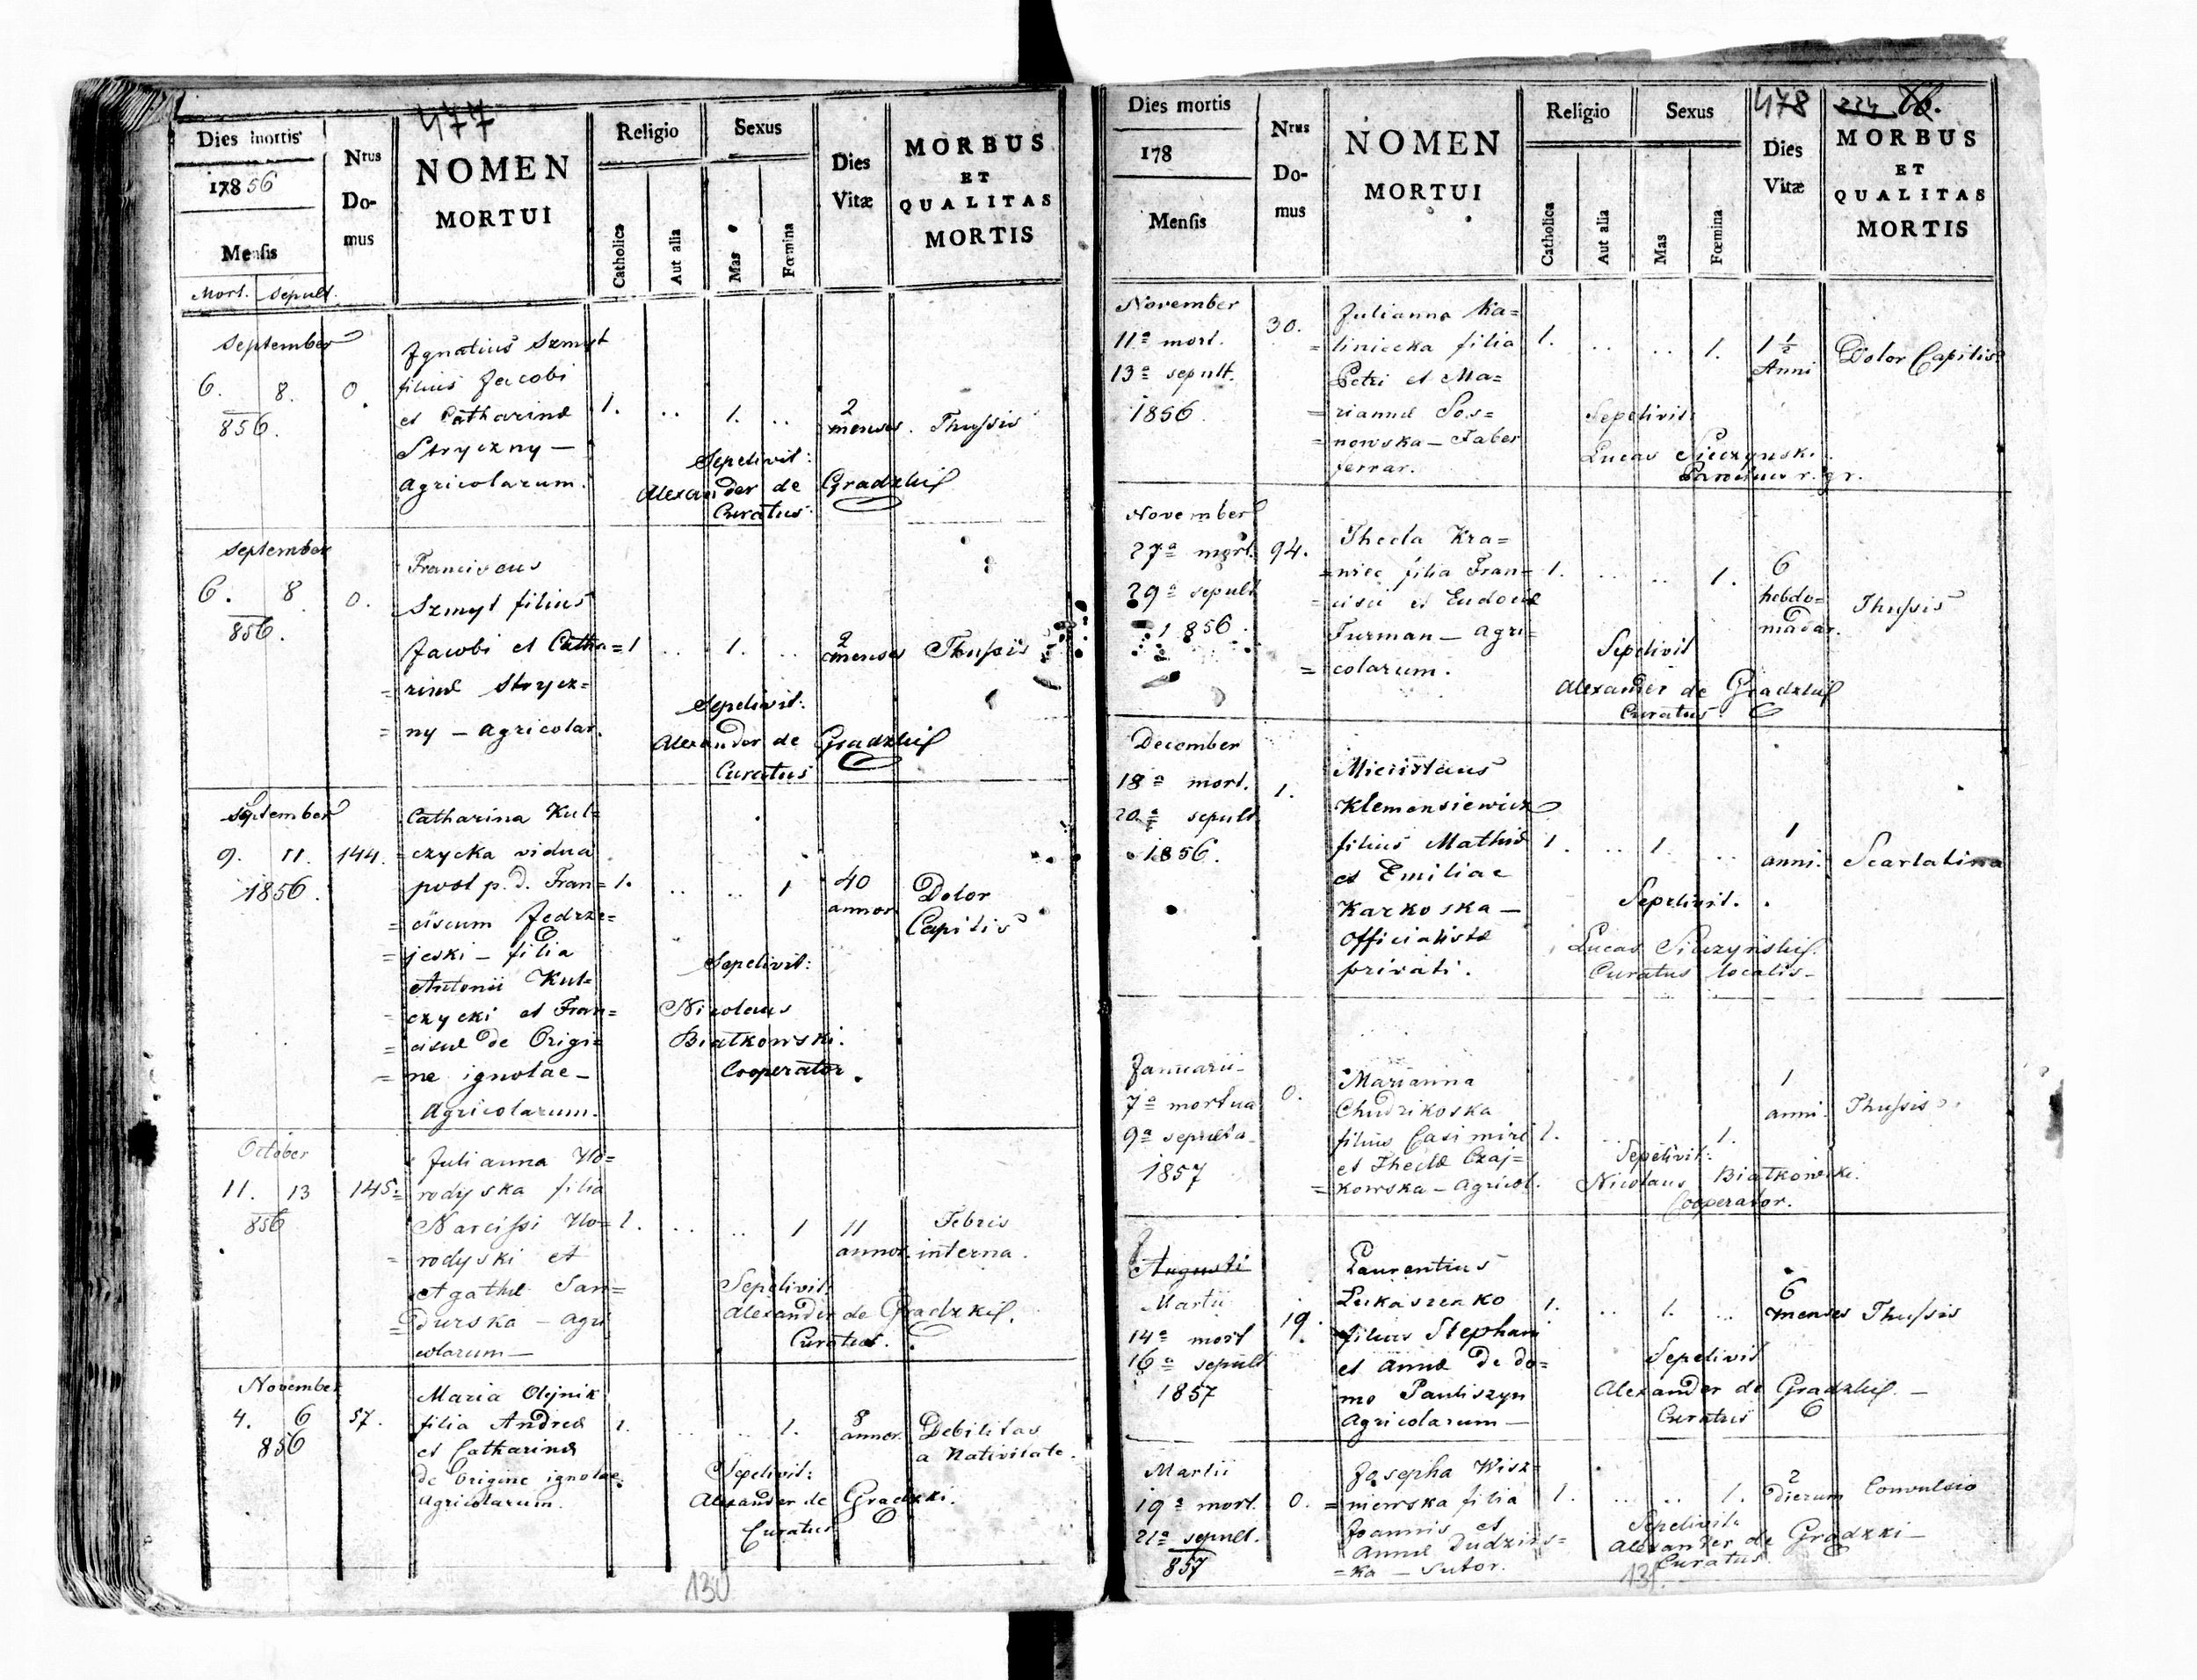 477
Dies mortis
17856
Mensis
Mort. Sepult.
Nrus
Do-
mus
NOMEN
MORTUI
Religio
Catholica
Aut alia
Sexus
Mas
Fœmina
Dies
Vitæ
MORBUS
ET
QUALITAS
MORTIS
September
6. 8.
856.
0.
Ignatius Szmyt
filius Jacobi
et Catharinæ
Stryczny —
Agricolarum.
1. .. 1. ..
2
menses. Thussis
Sepelivit:
Alexander de Gradzki
Curatus
September
6. 8
856.
0.
Franciscus
Szmyt filius
Jacobi et Catha=
=rinæ Strycz=
=ny — Agricolar.
1 .. 1. ..
2
menses Thussis
Sepelivit:
Alexander de Gradzki
Curatus
September
9. 11.
1856.
144.
Catharina Kul=
=czycka vidua
post p. d. Fran=
=ciscum Jedrze=
=jeski — filia
Antonii Kul=
czycki et Fran=
=ciscæ de Origi=
=ne ignotae —
Agricolarum.
1. .. .. 1
40
annor
Dolor
Capitis
Sepelivit:
Nicolaus
Białkowski.
Cooperator.
October
11. 13
856
145.
Julianna Ho=
=rodyska filia
Narcissi Ho=
=rodyski et
Agathæ San=
=durska — Agri
colarum —
1. .. .. 1
11
annor.
Febris
interna.
Sepelivit:
Alexander de Gradzki.
Curatus.
November
4. 6
856
57.
Maria Olejnik
filia Andreæ
et Catharinæ
de Origine ignotae.
Agricolarum.
1. .. .. 1.
8
annor.
Debilitas
a Nativitate.
Sepelivit:
Alexander de Gradzki.
Curatus
130
Dies mortis
178
Mensis
Nrus
Do-
mus
NOMEN
MORTUI
Religio
Catholica
Aut alia
Sexus
Mas
Fœmina
478
Dies
Vitæ
MORBUS
ET
QUALITAS
MORTIS
November
11a mort.
13a sepult.
1856.
30.
Julianna Ka=
=liniecka filia
Petri et Ma=
=riannæ Sos=
=nowska — Faber
ferrar.
1. .. .. 1.
1 1/2
Anni
Dolor Capitis
Sepelivit:
Lucas Siczynski.
Parochus r. gr.
November
27a mort.
29a sepult
1856.
94.
Thecla Kra=
=niec filia Fran=
=cisci et Eudociæ
Furman — Agri=
=colarum.
1. .. .. 1.
6
hebdo=
madar.
Thussis
Sepelivit
Alexander de Gradzki
Curatus
December
18a mort.
20a sepult
1856.
1.
Miecislaus
Klemensiewicz
filius Mathiæ
et Emiliae
Karkoska —
Officialistæ
privati.
1. .. 1. ..
1
anni.
Scarlatina
Sepelivit.
Lucas Siczyński.
Curatus localis —
Januarii —
7a mortua
9a sepulta —
1857
0.
Marianna
Chudzikoska
filius Casimiri
et Theclæ Czaj=
=kowska — Agricol.
1. .. 1.
1
anni.
Thussis
Sepelivit:
Nicolaus Białkowski.
Cooperator.
Augusti
Martii
14a mort
16a sepult
1857
19.
Laurentius
Lukaszenko
filius Stephani
et Annæ de do=
mo Pauliszyn
Agricolarum —
1. .. 1. ..
6
menses Thussis
Sepelivit
Alexander de Gradzki. —
Curatus
Martii
19a mort.
21a sepult.
857
0.
Josepha Wisz=
=niewska filia
Joannis et
Annæ Dudzins=
=ka — Sutor.
1. .. .. 1.
2
dierum
Convulsio
Sepelivit:
Alexander de Gradzki —
Curatus
131.